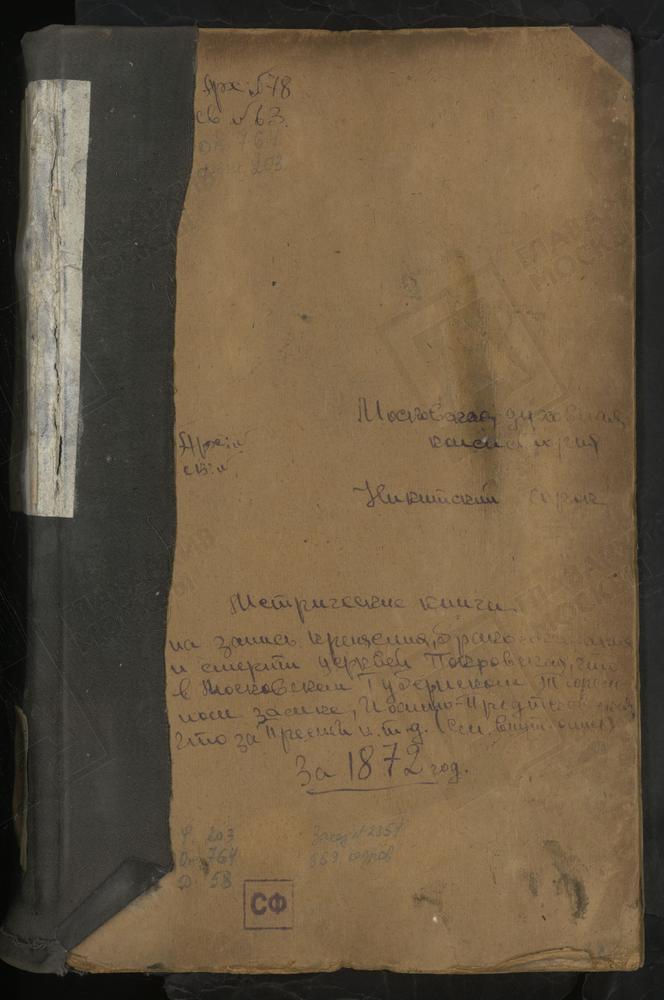 Арх: № 78
св № 63.
оп 764
фон. 203
Московская духовная
консистория
Арх: №
св: №
Никитский сорок
Метрические книги
на запись крещения, бракосочетания
и смерти церквей Покровская, что
в Московском Губернском Тюрем-
ном замке, Иоанно-Предтеченской
что за Пресней и.т.д. (См. внут. опись)
За 1872 год.
Ф 203
Оп 764
Д 58
СФ